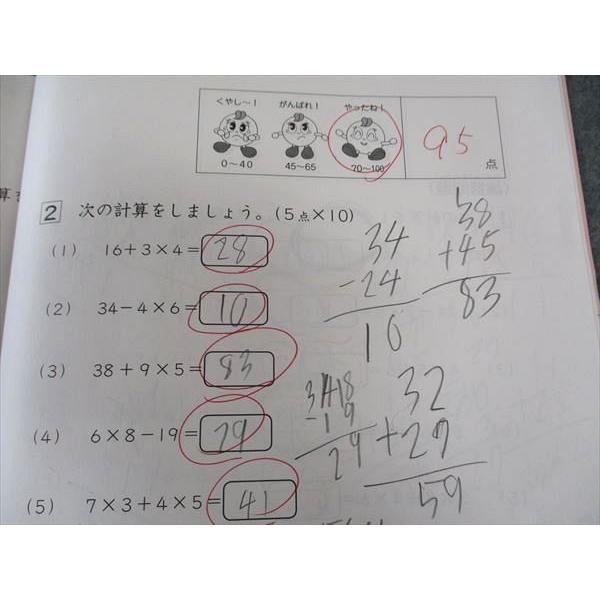 くやし～! がんばれ! やったね!
0～40 45～65 70～100 95点
2 次の計算をしましょう。(5点×10)
(1) 16+3×4=28
(2) 34-4×6=10
(3) 38+9×5=83
(4) 6×8-19=29
(5) 7×3+4×5=41
34
-24
10
38
+45
83
-19
29
32
+27
59